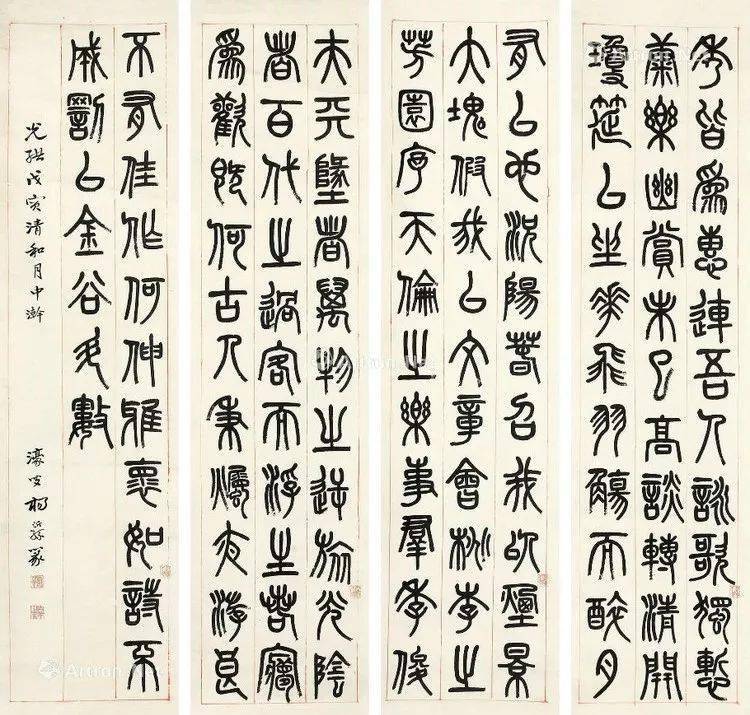 夫天墬者萬物之逆旅光陰
者百代之過客而浮生若寢
為歡幾何古人秉燭夜游良
有以也況陽春召我以煙景
大塊假我以文章會桃李之
芳園序天倫之樂事群季俊
秀皆為惠連吾人詠歌獨慙
康樂幽賞未已高談轉清開
瓊筵以坐華飛羽觴而醉月
不有佳作何伸雅懷如詩不
成罰以金谷酒數
光緒戊寅清和月中澣
濠叟楊沂孫篆